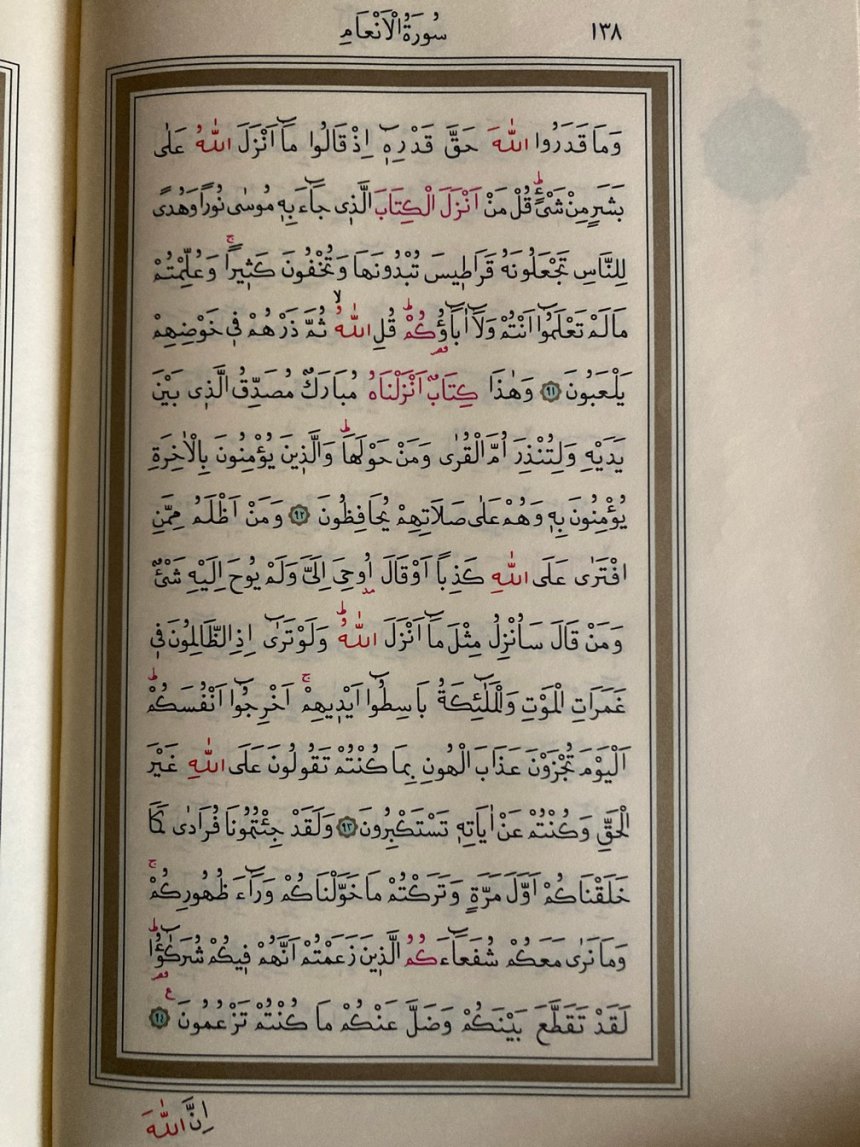 سُورَةُ الْاَنْعَامِ ١٣٨
وَمَا قَدَرُوا اللّٰهَ حَقَّ قَدْرِهٖٓ اِذْ قَالُوا مَٓا اَنْزَلَ اللّٰهُ عَلٰى
بَشَرٍ مِنْ شَيْءٍۜ قُلْ مَنْ اَنْزَلَ الْكِتَابَ الَّذٖي جَٓاءَ بِهٖ مُوسٰى نُوراً وَهُدًى
لِلنَّاسِ تَجْعَلُونَهُ قَرَاطٖيسَ تُبْدُونَهَا وَتُخْفُونَ كَثٖيراًۚ وَعُلِّمْتُمْ
مَا لَمْ تَعْلَمُٓوا اَنْتُمْ وَلَٓا اٰبَٓاؤُ۬كُمْۜ قُلِ اللّٰهُۙ ثُمَّ ذَرْهُمْ فٖي خَوْضِهِمْ
يَلْعَبُونَ ﴿٩١﴾ وَهٰذَا كِتَابٌ اَنْزَلْنَاهُ مُبَارَكٌ مُصَدِّقُ الَّذٖي بَيْنَ
يَدَيْهِ وَلِتُنْذِرَ اُمَّ الْقُرٰى وَمَنْ حَوْلَهَاۜ وَالَّذٖينَ يُؤْمِنُونَ بِالْاٰخِرَةِ
يُؤْمِنُونَ بِهٖ وَهُمْ عَلٰى صَلَاتِهِمْ يُحَافِظُونَ ﴿٩٢﴾ وَمَنْ اَظْلَمُ مِمَّنِ
افْتَرٰى عَلَى اللّٰهِ كَذِباً اَوْ قَالَ اُو۫حِيَ اِلَيَّ وَلَمْ يُوحَ اِلَيْهِ شَيْءٌ
وَمَنْ قَالَ سَاُنْزِلُ مِثْلَ مَٓا اَنْزَلَ اللّٰهُۜ وَلَوْ تَرٰٓى اِذِ الظَّالِمُونَ فٖي
غَمَرَاتِ الْمَوْتِ وَالْمَلٰٓئِكَةُ بَاسِطُٓوا اَيْدٖيهِمْۚ اَخْرِجُٓوا اَنْفُسَكُمْۜ
اَلْيَوْمَ تُجْزَوْنَ عَذَابَ الْهُونِ بِمَا كُنْتُمْ تَقُولُونَ عَلَى اللّٰهِ غَيْرَ
الْحَقِّ وَكُنْتُمْ عَنْ اٰيَاتِهٖ تَسْتَكْبِرُونَ ﴿٩٣﴾ وَلَقَدْ جِئْتُمُونَا فُرَادٰى كَمَا
خَلَقْنَاكُمْ اَوَّلَ مَرَّةٍ وَتَرَكْتُمْ مَا خَوَّلْنَاكُمْ وَرَٓاءَ ظُهُورِكُمْۚ
وَمَا نَرٰى مَعَكُمْ شُفَعَٓاءَكُمُ الَّذٖينَ زَعَمْتُمْ اَنَّهُمْ فٖيكُمْ شُرَكٰٓؤُ۬اۜ
لَقَدْ تَقَطَّعَ بَيْنَكُمْ وَضَلَّ عَنْكُمْ مَا كُنْتُمْ تَزْعُمُونَ ﴿٩٤﴾ ع
اِنَّ اللّٰهَ